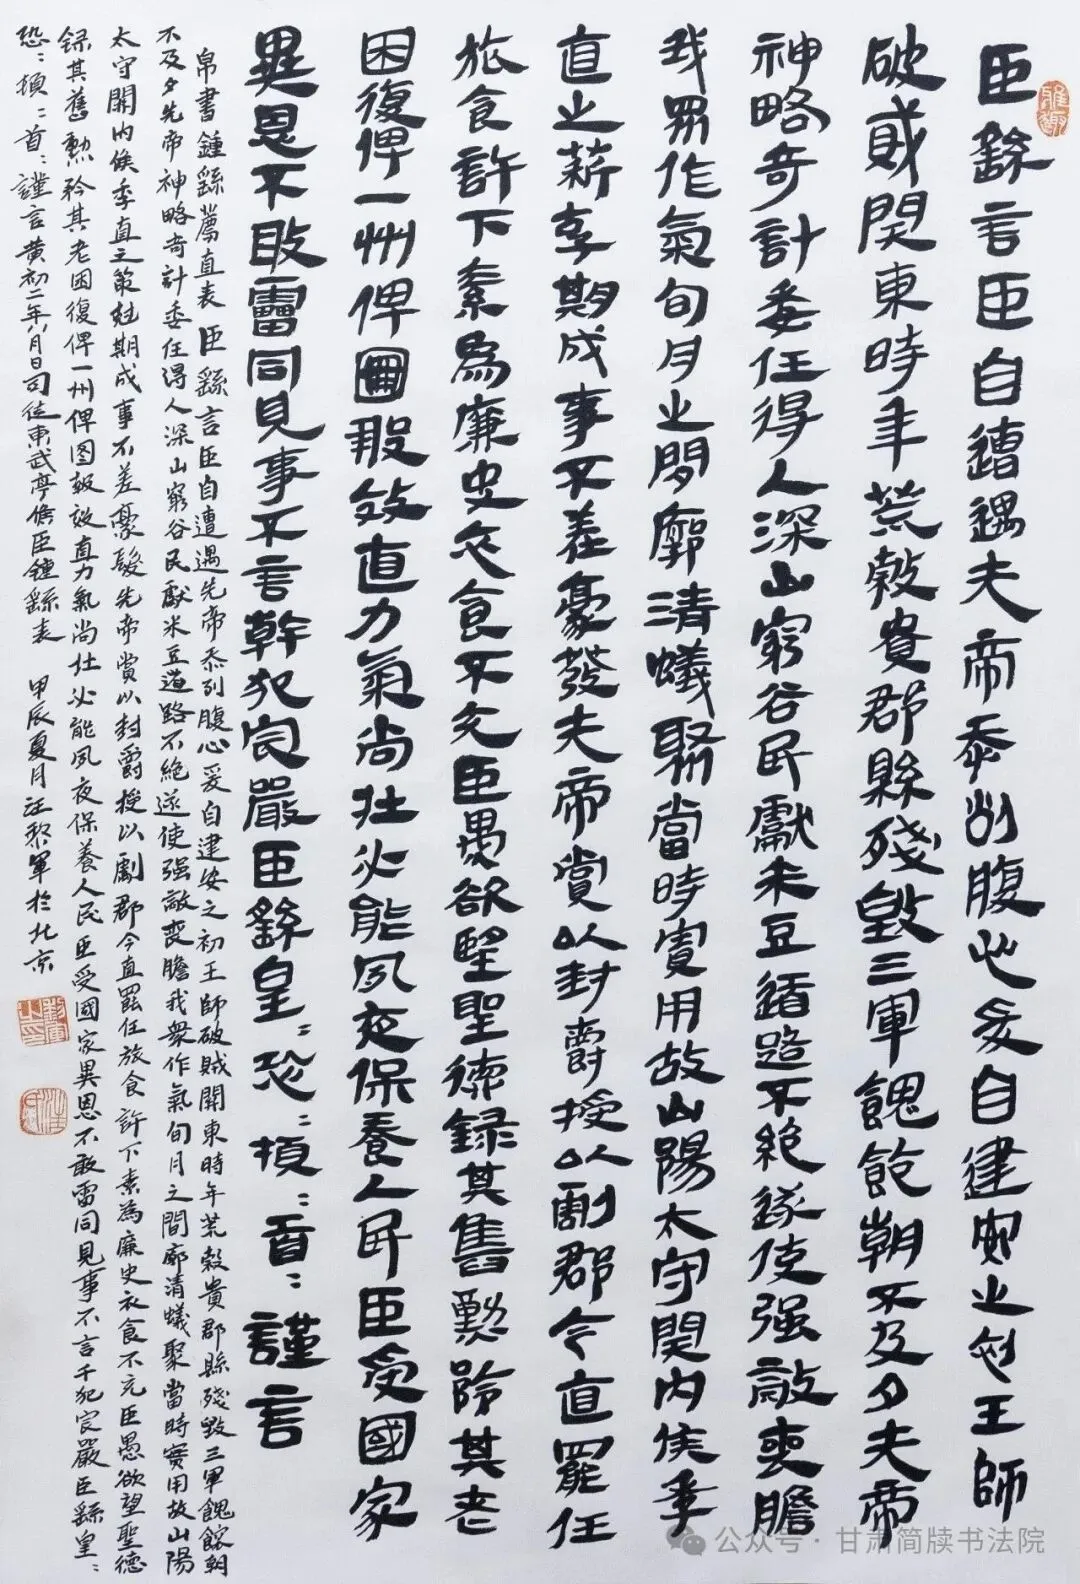 臣繇言臣自遭遇先帝忝列腹心爰自建安之初王師
破賊関東時年荒穀貴郡縣殘毀三軍餽饟朝不及夕先帝
神略奇計委任得人深山窮谷民獻米豆道路不絶遂使强敵喪膽
我眾作氣旬月之間廓清蟻聚當時實用故山陽太守関内侯季
直之策剋期成事不差豪發先帝賞以封爵授以劇郡今直罷任
旅食許下素為廉吏衣食不充臣愚欲望聖德録其舊勲矜其老
困復俾一州俾圖報效直力氣尚壮必能夙夜保養人民臣受國家
異恩不敢雷同見事不言幹犯宸嚴臣繇皇:恐:頓:首:謹言
帛書鍾繇薦直表臣繇言臣自遭遇先帝忝列腹心爰自建安之初王師破賊関東時年荒穀貴郡縣殘毀三軍餽饟朝
不及夕先帝神略奇計委任得人深山窮谷民獻米豆道路不絶遂使强敵喪膽我衆作氣旬月之間廓清蟻聚當時實用故山陽
太守関内侯季直之策尅期成事不差豪髮先帝賞以封爵授以劇郡今直罷任旅食許下素為廉吏衣食不充臣愚欲望聖德
録其舊勲矜其老困復俾一州俾图報效直力氣尚壮必能夙夜保養人民臣受國家異恩不敢雷同見事不言干犯宸嚴臣繇皇:
恐:頓:首:謹言黄初二年八月日司徒東武亭侯臣鍾繇表 甲辰夏月汪黎軍於北京
公众号·甘肃简牍书法院